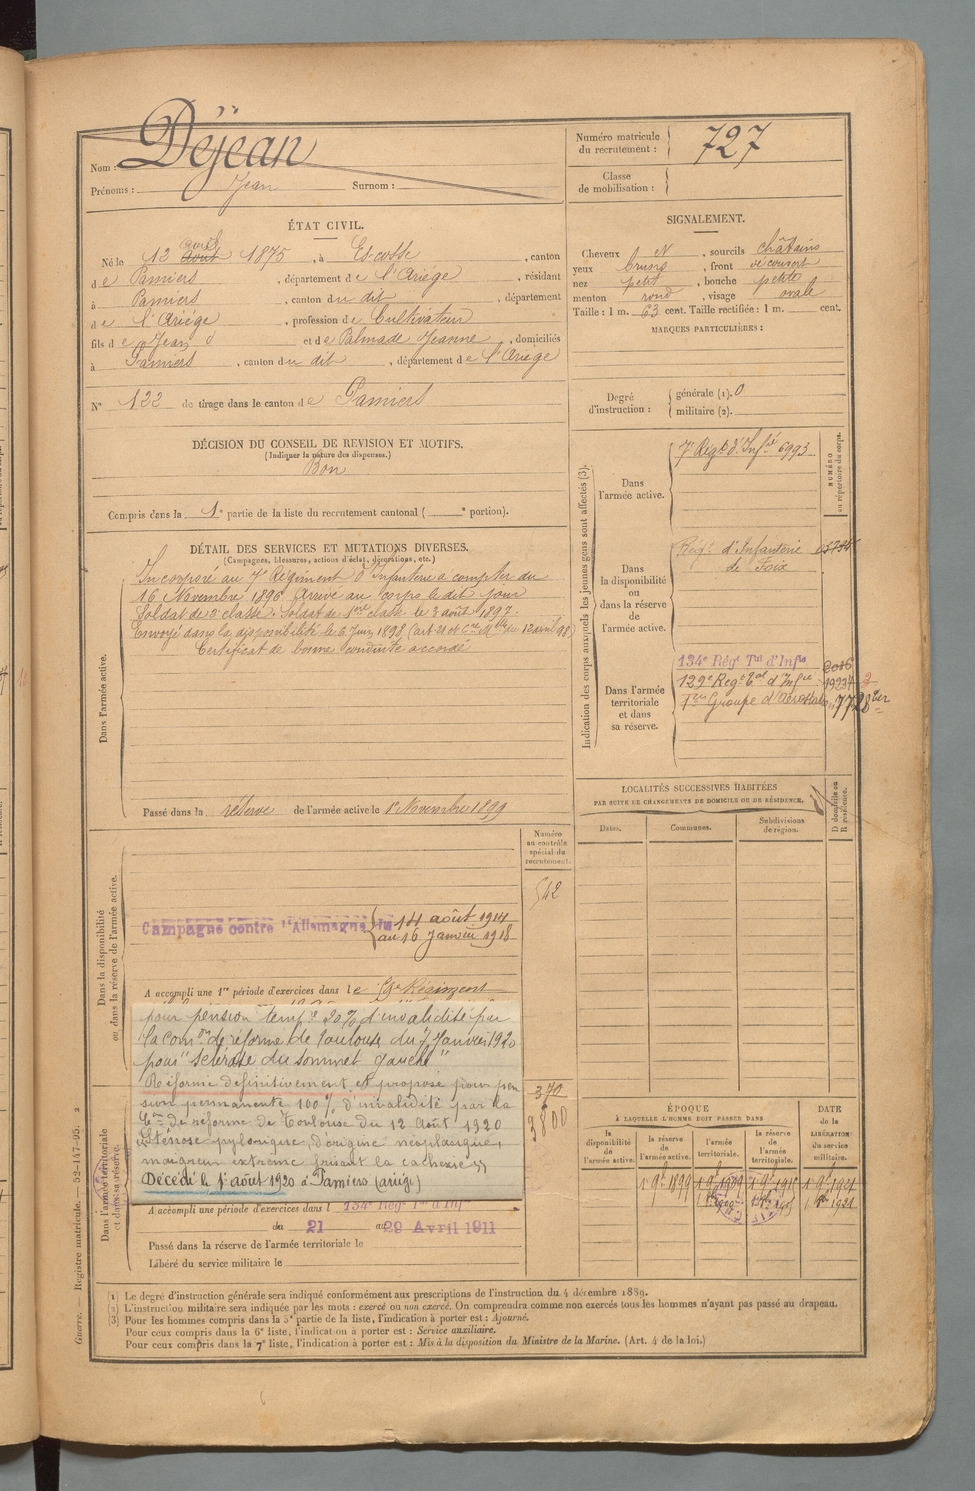 Nom : Déjean
Prénoms : Jean Surnom :
Numéro matricule du recrutement : 727
Classe de mobilisation :
ÉTAT CIVIL.
Né le 12 avril août 1875, à Escosse, canton
de Pamiers, département de l'Ariège, résidant
à Pamiers, canton du dit, département
de l'Ariège, profession de Cultivateur
fils de Jean et de Palmade Jeanne, domiciliés
à Pamiers, canton du dit, département de l'Ariège
N° 122 de tirage dans le canton de Pamiers
SIGNALEMENT.
Cheveux N, sourcils châtains
yeux bruns, front découvert
nez petit, bouche petite
menton rond, visage ovale
Taille : 1 m. 63 cent. Taille rectifiée : 1 m. cent.
MARQUES PARTICULIÈRES :
Degré d'instruction : générale (1). 0
militaire (2).
DÉCISION DU CONSEIL DE REVISION ET MOTIFS.
(Indiquer la nature des dispenses.)
Bon
Compris dans la 1e partie de la liste du recrutement cantonal ( e portion).
DÉTAIL DES SERVICES ET MUTATIONS DIVERSES.
(Campagnes, blessures, actions d'éclat, décorations, etc.)
Dans l'armée active.
Incorporé au 7e Régiment d'Infanterie à compter du
16 Novembre 1896. Arrivé au corps le dit jour
Soldat de 2e classe. Soldat de 1ère classe le 3 août 1897.
Envoyé dans la disponibilité le 6 Juin 1898 (art 21 et Cre Mlle du 12 avril 98)
Certificat de bonne conduite accordé
Passé dans la réserve de l'armée active le 1er Novembre 1899
Indication des corps auxquels les jeunes gens sont affectés (3).
NUMÉRO au répertoire du corps.
Dans l'armée active.
7e Régt d'Infie 6993
Dans la disponibilité ou dans la réserve de l'armée active.
Régt d'Infanterie
de Foix
Dans l'armée territoriale et dans sa réserve.
134e Régt Tal d'Infie
129e Régt Tal d'Infie
1er Groupe
7728 ter
LOCALITÉS SUCCESSIVES HABITÉES
PAR SUITE DE CHANGEMENTS DE DOMICILE OU DE RÉSIDENCE.
D domicile ou R résidence.
Dates. Communes. Subdivisions de région.
Numéro au contrôle spécial du recrutement.
542
Dans la disponibilité ou dans la réserve de l'armée active.
Campagne contre l'Allemagne du 14 août 1914
au 16 Janvier 1918
A accompli une 1re période d'exercices dans le Régiment
pour pension temp.re 20% d'invalidité par
la comon de réforme de Toulouse du 7 Janvier 1920
pour "sclérose du sommet gauche"
Réformé définitivement et proposé pour pen
sion permanente 100% d'invalidité par la
Con de réforme de Toulouse du 12 Août 1920
Sténose pylorique d'origine néoplasique,
maigreur extrême frisant la cachexie
Décédé le 1er août 1920 à Pamiers (ariège)
370
3800
Dans l'armée territoriale et dans sa réserve.
A accompli une période d'exercices dans l 134e Régt Tal d'Inf
du 21 au 29 Avril 1911
Passé dans la réserve de l'armée territoriale le
Libéré du service militaire le
ÉPOQUE
À LAQUELLE L'HOMME DOIT PASSER DANS
DATE de la LIBÉRATION du service militaire.
la disponibilité de l'armée active. la réserve de l'armée active. l'armée territoriale. la réserve de l'armée territoriale.
1 9bre 1899 1 9bre 1909 1 9bre 1915 1 9bre 1921
Guerre. — Registre matricule. — 52-147-95. 2
(1) Le degré d'instruction générale sera indiqué conformément aux prescriptions de l'instruction du 4 décembre 1889.
(2) L'instruction militaire sera indiquée par les mots : exercé ou non exercé. On comprendra comme non exercés tous les hommes n'ayant pas passé au drapeau.
(3) Pour les hommes compris dans la 5e partie de la liste, l'indication à porter est : Ajourné.
Pour ceux compris dans la 6e liste, l'indication à porter est : Service auxiliaire.
Pour ceux compris dans la 7e liste, l'indication à porter est : Mis à la disposition du Ministre de la Marine. (Art. 4 de la loi.)